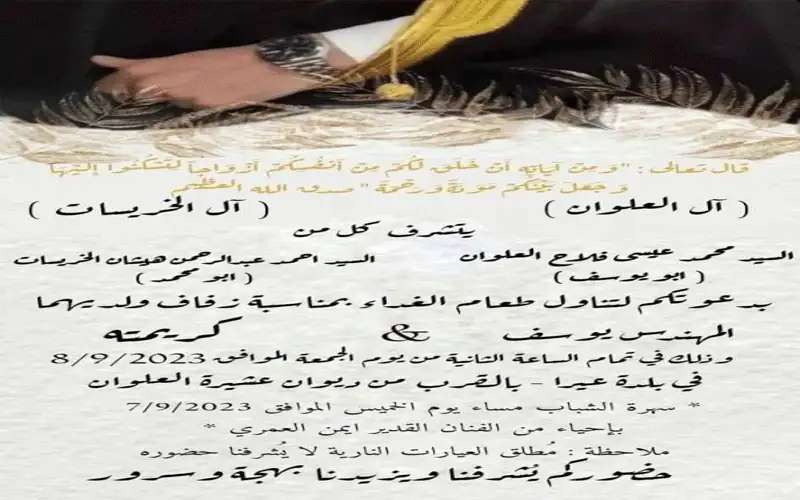 قال تعالى : "ومن آياته أن خلق لكم من أنفسكم أزواجاً لتسكنوا إليها
وجعل بينكم مودة ورحمة" صدق الله العظيم
( آل العلوان ) ( آل الخريسات )
يتشرف كل من
السيد محمد عيسى فلاح العلوان السيد احمد عبدالرحمن هيشان الخريسات
( ابو يوسف ) ( ابو محمد )
بدعوتكم لتناول طعام الغداء بمناسبة زفاف ولديهما
المهندس يوسف & كريمته
وذلك في تمام الساعة الثانية من يوم الجمعة الموافق 8/9/2023
في بلدة عيرا - بالقرب من ديوان عشيرة العلوان
* سهرة الشباب مساء يوم الخميس الموافق 7/9/2023
بإحياء من الفنان القدير ايمن العمري *
ملاحظة : مُطلق العيارات النارية لا يُشرفنا حضوره
حضوركم يُشرفنا ويزيدنا بهجة وسرور